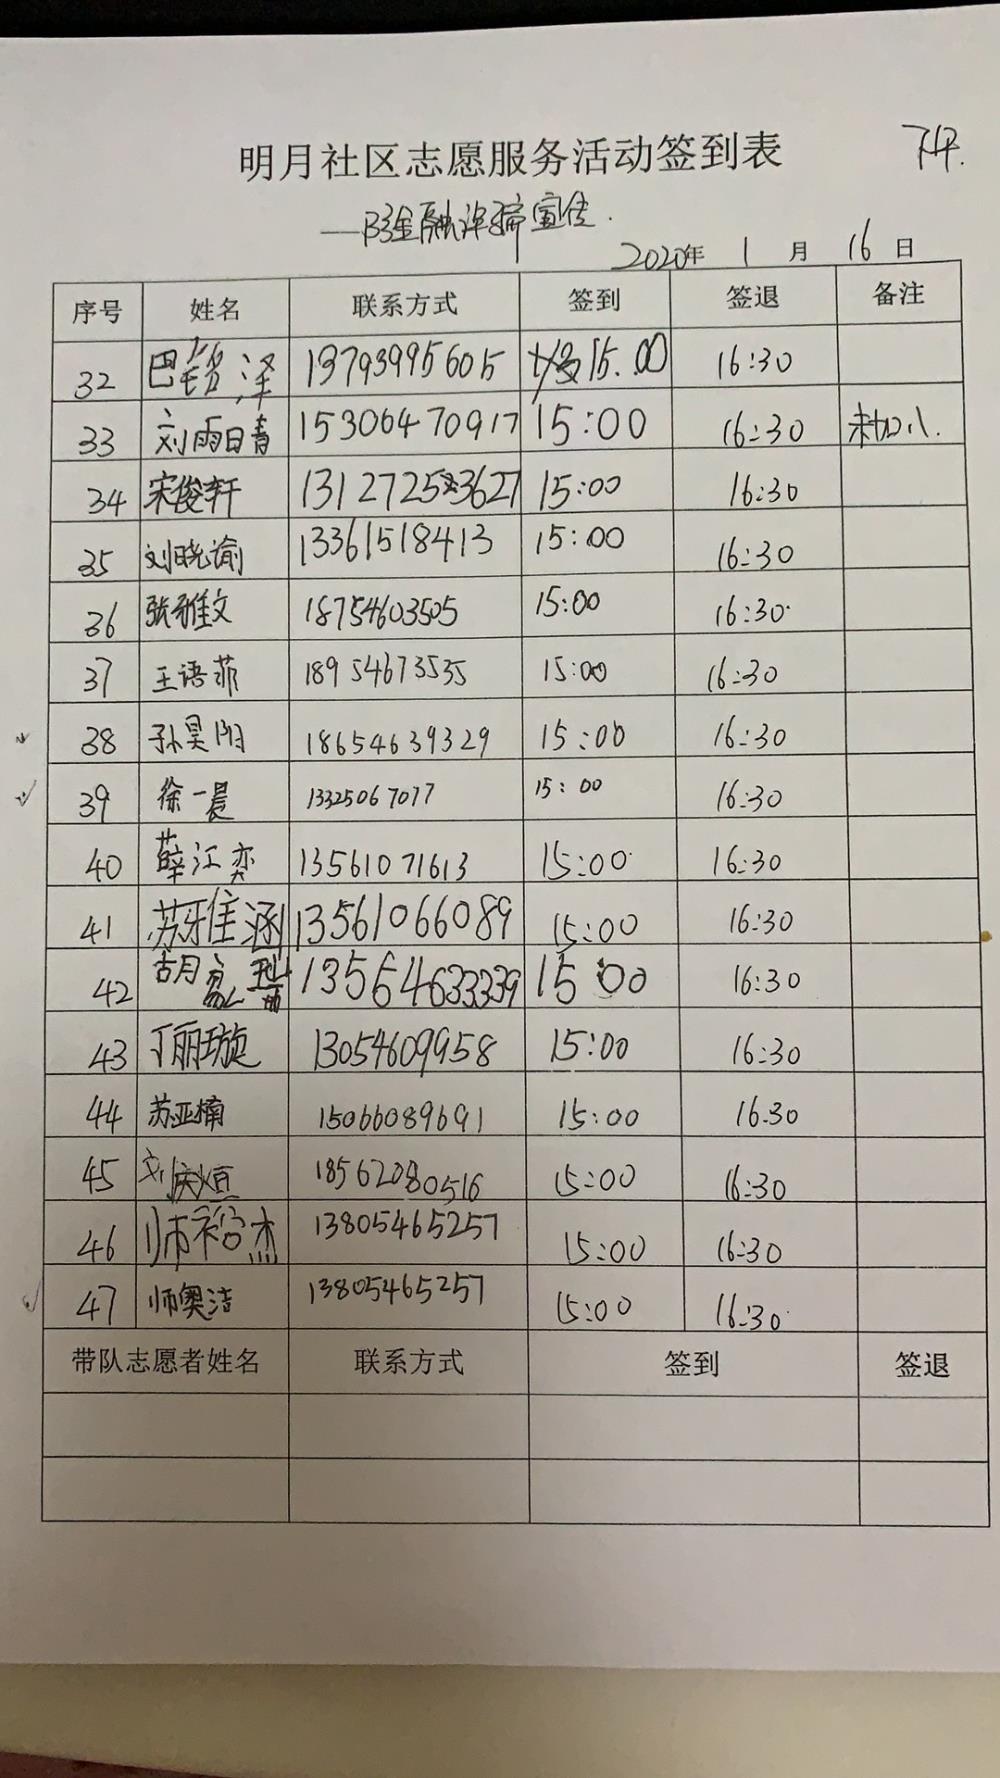 明月社区志愿服务活动签到表 下午.
——防金融诈骗宣传.
2020年 1 月 16 日
序号 姓名 联系方式 签到 签退 备注
32 巴铭泽 13793995605 15.00 16:30
33 刘雨晴 15306470917 15:00 16:30 未加入.
34 宋俊轩 131272533627 15:00 16:30
35 刘晓谕 13361518413 15:00 16:30
36 张雅文 18754603505 15:00 16:30
37 王语菲 18954673535 15:00 16:30
38 孙昊阳 18654639329 15:00 16:30
39 徐一晨 13325067077 15:00 16:30
40 薛江奕 13561071613 15:00 16:30
41 苏雅涵 13561066089 15:00 16:30
42 胡 13564633339 15:00 16:30
43 丁丽璇 13054609958 15:00 16:30
44 苏亚楠 15066089691 15:00 16.30
45 刘庆烜 18562080516 15:00 16:30
46 师裕杰 13805465257 15:00 16:30
47 师奥洁 13805465257 15:00 16:30
带队志愿者姓名 联系方式 签到 签退